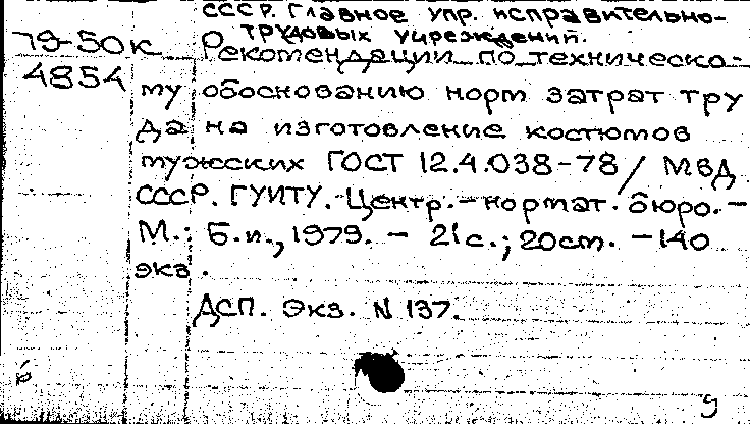 СССР. Главное упр. исправительно-
трудовых учреждений.
79-50к Рекомендации по техническо-
4854 му обоснованию норм затрат тру
да на изготовление костюмов
мужских ГОСТ 12.4.038-78/ МВД
СССР. ГУИТУ. Центр.-нормат. бюро.-
М.: Б.и., 1979. - 21с.; 20см. -140
экз.
ДСП. Экз. N 137.